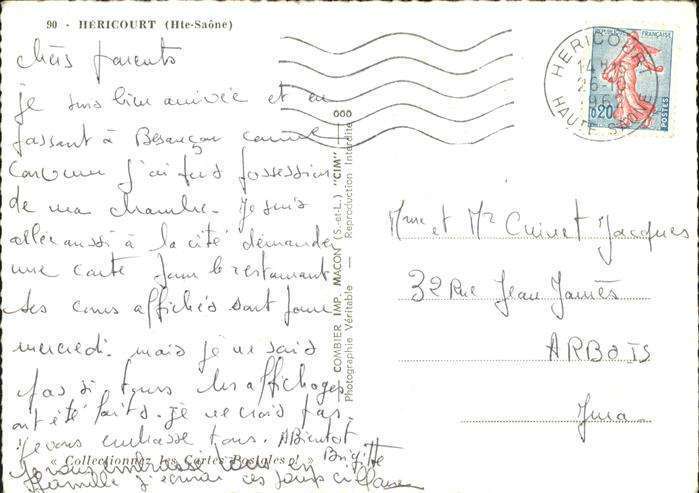 90 - HÉRICOURT (Hte-Saône)
chers parents
je suis bien arrivée et en
passant à Besançon comme
convenu j'ai pris possession
de ma chambre. Je suis
allée aussi à la cité demander
une carte pour le restaurant
des cours affichés sont pour
mercredi. mais je ne sais
pas si tous les affichages
ont été faits. je ne crois pas.
Je vous embrasse tous. A Bientôt
Brigitte
« Collectionnez les Cartes Postales ! »
je vous embrasse tous en
famille j'écrirai ces jours ci
000
COMBIER IMP. MACON (S.-et-L.) "CIM"
Photographie Véritable — Reproduction Interdite
RÉPUBLIQUE FRANÇAISE
0,20
POSTES
HERICOURT
26-10
HAUTE SAONE
Mme et Mr Cuinet Jacques
32 Rue Jean Jaurès
ARBOIS
Jura